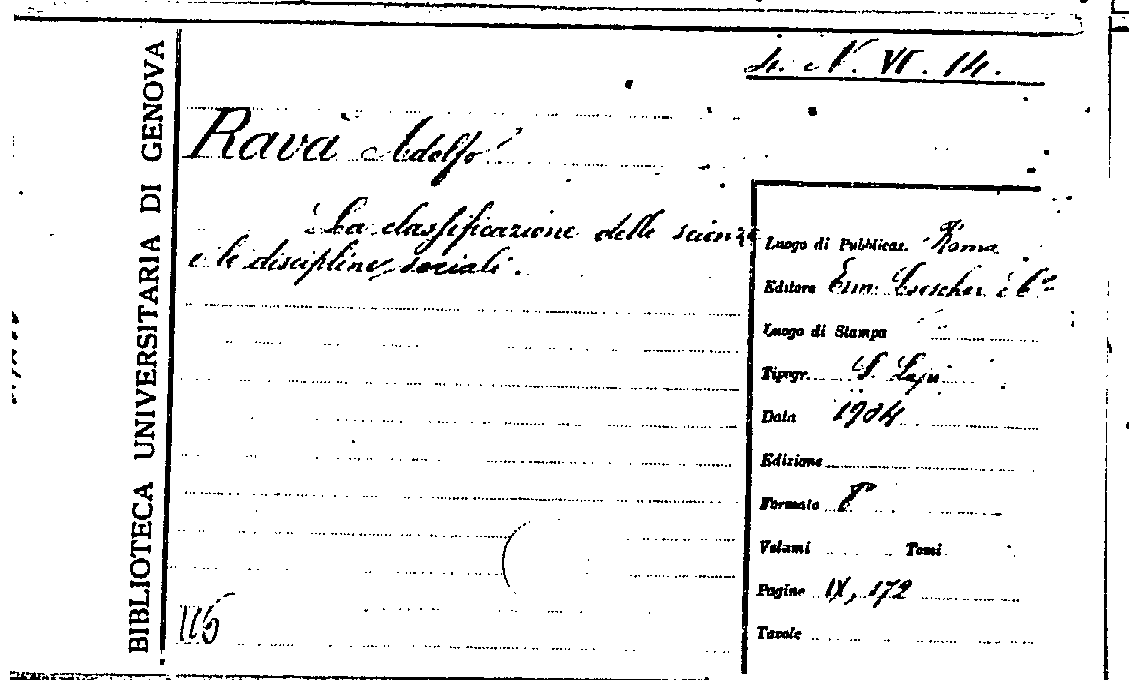 4. N. VI. 14.
BIBLIOTECA UNIVERSITARIA DI GENOVA
Ravà Adolfo
La classificazione delle scienze
e le discipline sociali.
Luogo di Pubblicaz. Roma
Editore Erm. Loescher e Co
Luogo di Stampa
Tipogr. S. Lapi
Data 1904
Edizione
Formato 8°
Volumi Tomi
Pagine IX, 172
Tavole